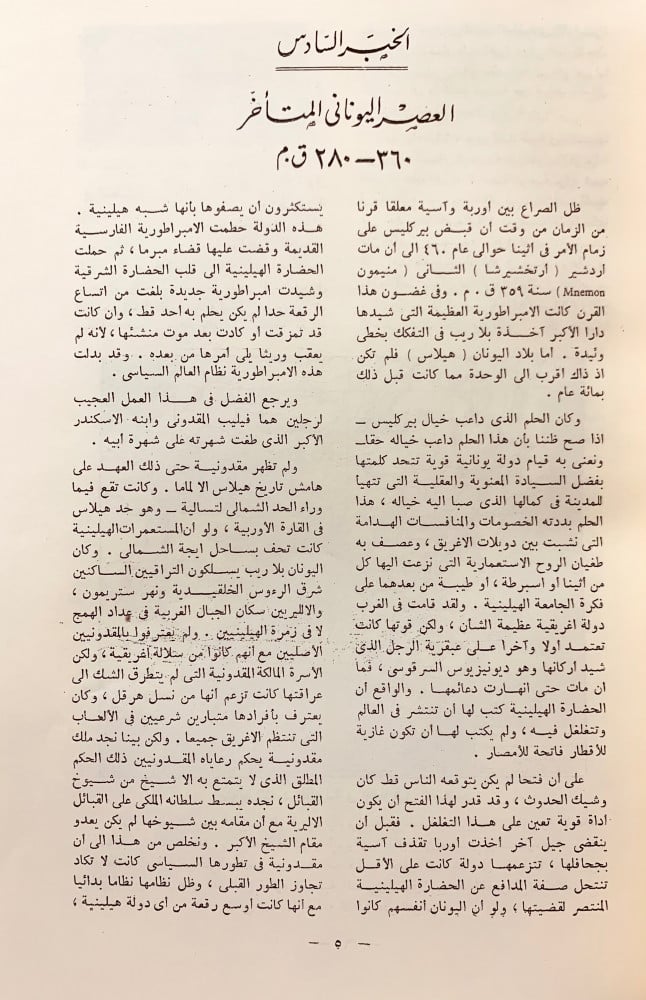 الخبر السادس
العصر اليونانى المتأخر
٣٦٠ – ٢٨٠ ق.م
ظل الصراع بين أوربة وآسية معلقا قرنا
من الزمان من وقت أن قبض بيركليس على
زمام الأمر فى أثينا حوالى عام ٤٦٠ الى أن مات
أردشير ( أرتخشيرشا ) الثانى ( منيمون
Mnemon ) سنة ٣٥٩ ق . م . وفى غضون هذا
القرن كانت الامبراطورية العظيمة التى شيدها
دارا الأكبر آخذة بلا ريب فى التفكك بخطى
وئيدة . أما بلاد اليونان ( هيلاس ) فلم تكن
اذ ذاك أقرب الى الوحدة مما كانت قبل ذلك
بمائة عام .
وكان الحلم الذى داعب خيال بيركليس –
اذا صح ظننا بأن هذا الحلم داعب خياله حقا –
ونعنى به قيام دولة يونانية قوية تتحد كلمتها
بفضل السيادة المعنوية والعقلية التى تتهيأ
للمدينة فى كمالها الذى صبا اليه خياله ، هذا
الحلم بددته الخصومات والمنافسات الهدامة
التى نشبت بين دويلات الاغريق ، وعصف به
طغيان الروح الاستعمارية التى نزعت اليها كل
من أثينا أو اسبرطة ، أو طيبة من بعدهما على
فكرة الجامعة الهيلينية . ولقد قامت فى الغرب
دولة اغريقية عظيمة الشأن ، ولكن قوتها كانت
تعتمد أولا وآخرا على عبقرية الرجل الذى
شيد أركانها وهو ديونيزيوس السرقوسى ، فما
أن مات حتى انهارت دعائمها . والواقع أن
الحضارة الهيلينية كتب لها أن تنتشر فى العالم
وتتغلغل فيه ، ولم يكتب لها أن تكون غازية
للأقطار فاتحة للأمصار .
على أن فتحا لم يكن يتوقعه الناس قط كان
وشيك الحدوث ، وقد قدر لهذا الفتح أن يكون
أداة قوية تعين على هذا التغلغل . فقبل أن
ينقضى جيل آخر أخذت أوربا تقذف آسية
بجحافلها ، تتزعمها دولة كانت على الأقل
تنتحل صفة المدافع عن الحضارة الهيلينية
المنتصر لقضيتها ، ولو أن اليونان أنفسهم كانوا
يستكثرون أن يصفوها بأنها شبه هيلينية .
هذه الدولة حطمت الامبراطورية الفارسية
القديمة وقضت عليها قضاء مبرما ، ثم حملت
الحضارة الهيلينية الى قلب الحضارة الشرقية
وشيدت امبراطورية جديدة بلغت من اتساع
الرقعة حدا لم يكن يحلم به أحد قط ، وان كانت
قد تمزقت أو كادت بعد موت منشئها ، لأنه لم
يعقب وريثا يلى أمرها من بعده . وقد بدلت
هذه الامبراطورية نظام العالم السياسى .
ويرجع الفضل فى هذا العمل العجيب
لرجلين هما فيليب المقدونى وابنه الاسكندر
الأكبر الذى طغت شهرته على شهرة أبيه .
ولم تظهر مقدونية حتى ذلك العهد على
هامش تاريخ هيلاس الا لماما . وكانت تقع فيما
وراء الحد الشمالى لتسالية – وهو حد هيلاس
فى القارة الأوربية ، ولو أن المستعمرات الهيلينية
كانت تحف بساحل ايجة الشمالى . وكان
اليونان بلا ريب يسلكون التراقيين الساكنين
شرق الرءوس الخلقيدية ونهر ستريمون ،
والالليريين سكان الجبال الغربية فى عداد الهمج
لا فى زمرة الهيلينيين . ولم يعترفوا بالمقدونيين
الأصليين مع أنهم كانوا من سلالة اغريقية ، ولكن
الأسرة المالكة المقدونية التى لم يتطرق الشك الى
عراقتها كانت تزعم أنها من نسل هرقل ، وكان
يعترف بأفرادها متبارين شرعيين فى الألعاب
التى تنتظم الاغريق جميعا . ولكن بينا نجد ملك
مقدونية يحكم رعاياه المقدونيين ذلك الحكم
المطلق الذى لا يتمتع به الا شيخ من شيوخ
القبائل ، نجده يبسط سلطانه الملكى على القبائل
الاليرية مع أن مقامه بين شيوخها لم يكن يعدو
مقام الشيخ الأكبر . ونخلص من هذا الى أن
مقدونية فى تطورها السياسى كانت لا تكاد
تجاوز الطور القبلى ، وظل نظامها نظاما بدائيا
مع أنها كانت أوسع رقعة من أى دولة هيلينية ،
– ٥ –